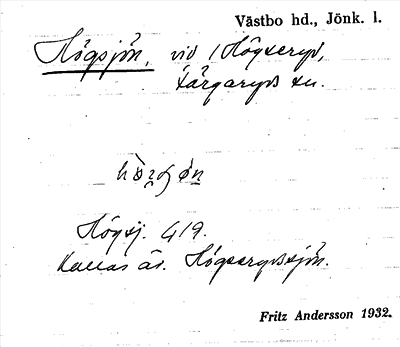 Västbo hd., Jönk. l.
Högsjön, vid 1 Högseryd,
Färgaryds sn.
Högsj. 419.
Kallas äv. Högserydssjön.
Fritz Andersson 1932.